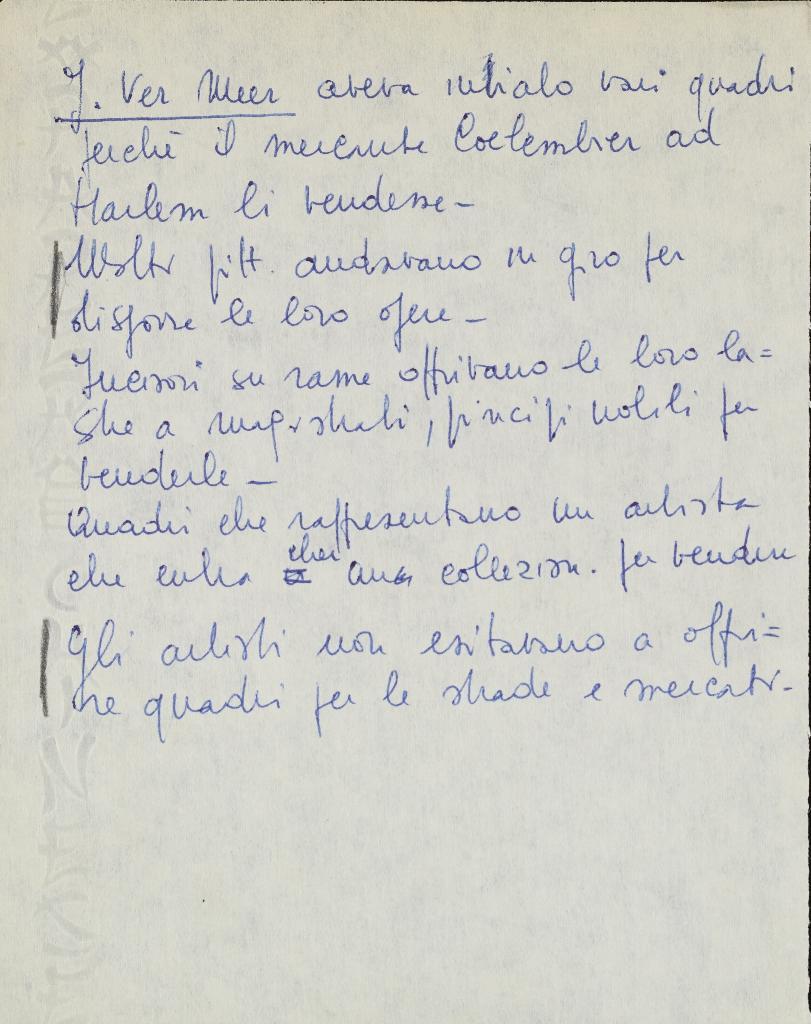 J. Ver Meer aveva inviato vari quadri
perchè il mercante Coelembier ad
Harlem li vendesse -
Molti pitt. andavano in giro per
disporre le loro opere -
Incisori su rame offrivano le loro la=
stre a magistrati, principi nobili per
venderle -
Quadri che rappresentano un artista
che entra da un collezion. per vendere
Gli artisti non esitavano a offri=
re quadri per le strade e mercati -